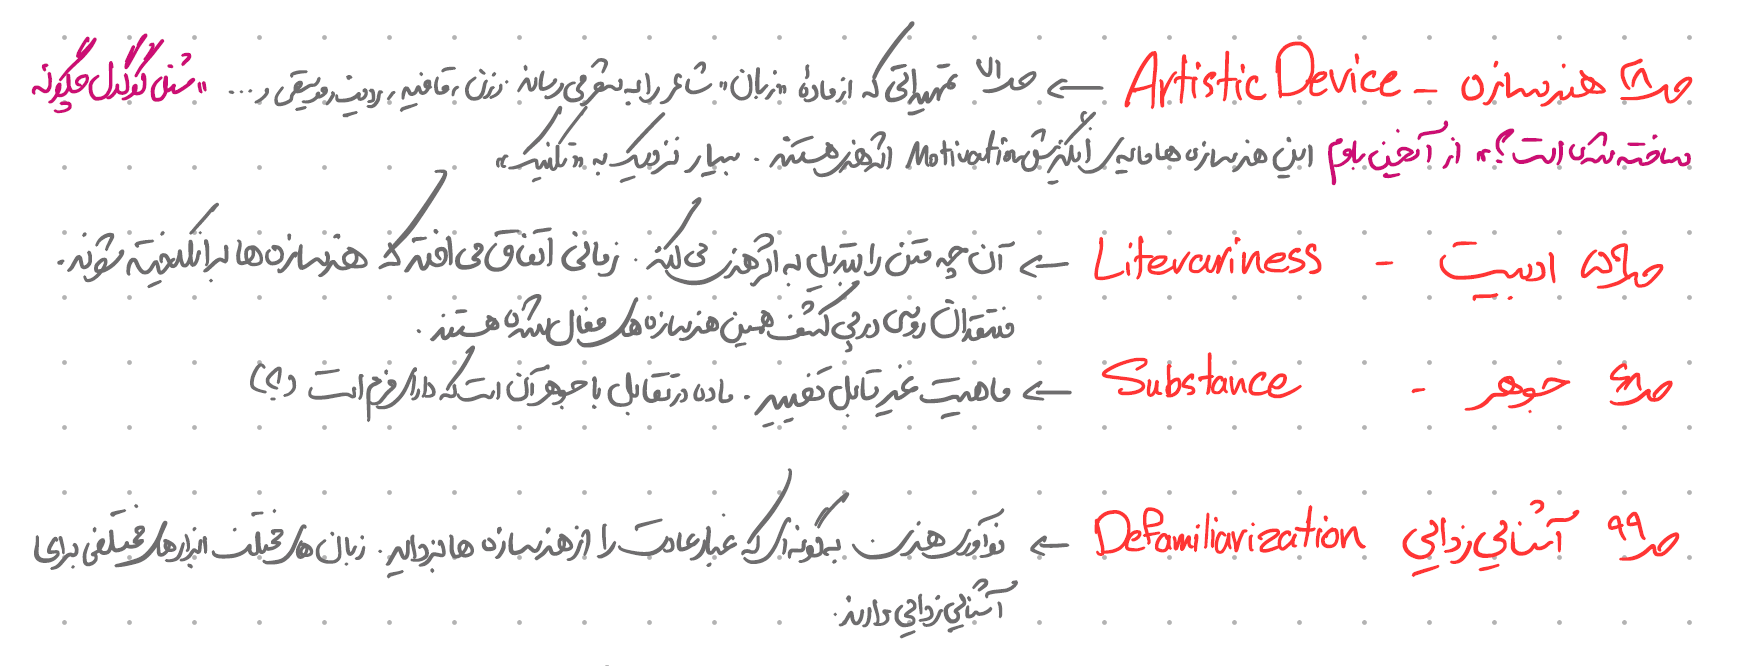 ص۲۸ هنرسازه - Artistic Device ← ص۷۱ تمهیداتی که از مادهٔ «زبان» شاعر را به شعر می‌رساند. وزن، قافیه، ردیف، موسیقی و... «شنل گوگول چگونه
ساخته شده است؟» از آیخن باوم این هنرسازه‌ها مایه‌ی انگیزش Motivation اثر هنر هستند. بسیار نزدیک به «تکنیک»
ص۵۹ ادبیت - Literariness ← آن چه متن را تبدیل به اثر هنری می‌کند. زمانی اتفاق می‌افتد که هنرسازه‌ها برانگیخته شوند.
منتقدان روسی در پی کشف همین هنرسازه‌های فعال شده هستند.
ص۶۸ جوهر - Substance ← ماهیت غیر قابل تغییر. ماده در تقابل با جوهر آن است که دارای فرم است (؟)
ص۹۹ آشنایی زدایی Defamiliarization ← نوآوری هنری به گونه‌ای که غبار عادت را از هنرسازه‌ها بزداید. زبان‌های مختلف ابزارهای مختلفی برای
آشنایی زدایی دارند.